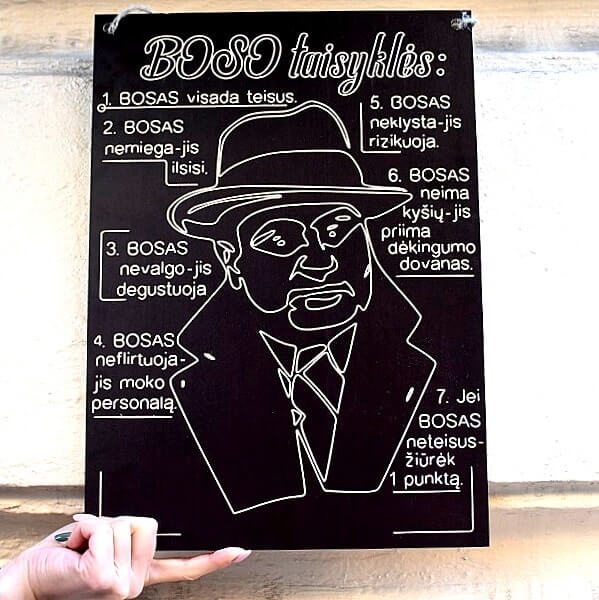 BOSO taisyklės:
1. BOSAS visada teisus.
2. BOSAS
nemiega-jis
ilsisi.
3. BOSAS
nevalgo-jis
degustuoja
4. BOSAS
neflirtuoja-
jis moko
personalą.
5. BOSAS
neklysta-jis
rizikuoja.
6. BOSAS
neima
kyšių-jis
priima
dėkingumo
dovanas.
7. Jei
BOSAS
neteisus-
žiūrėk
1 punktą.